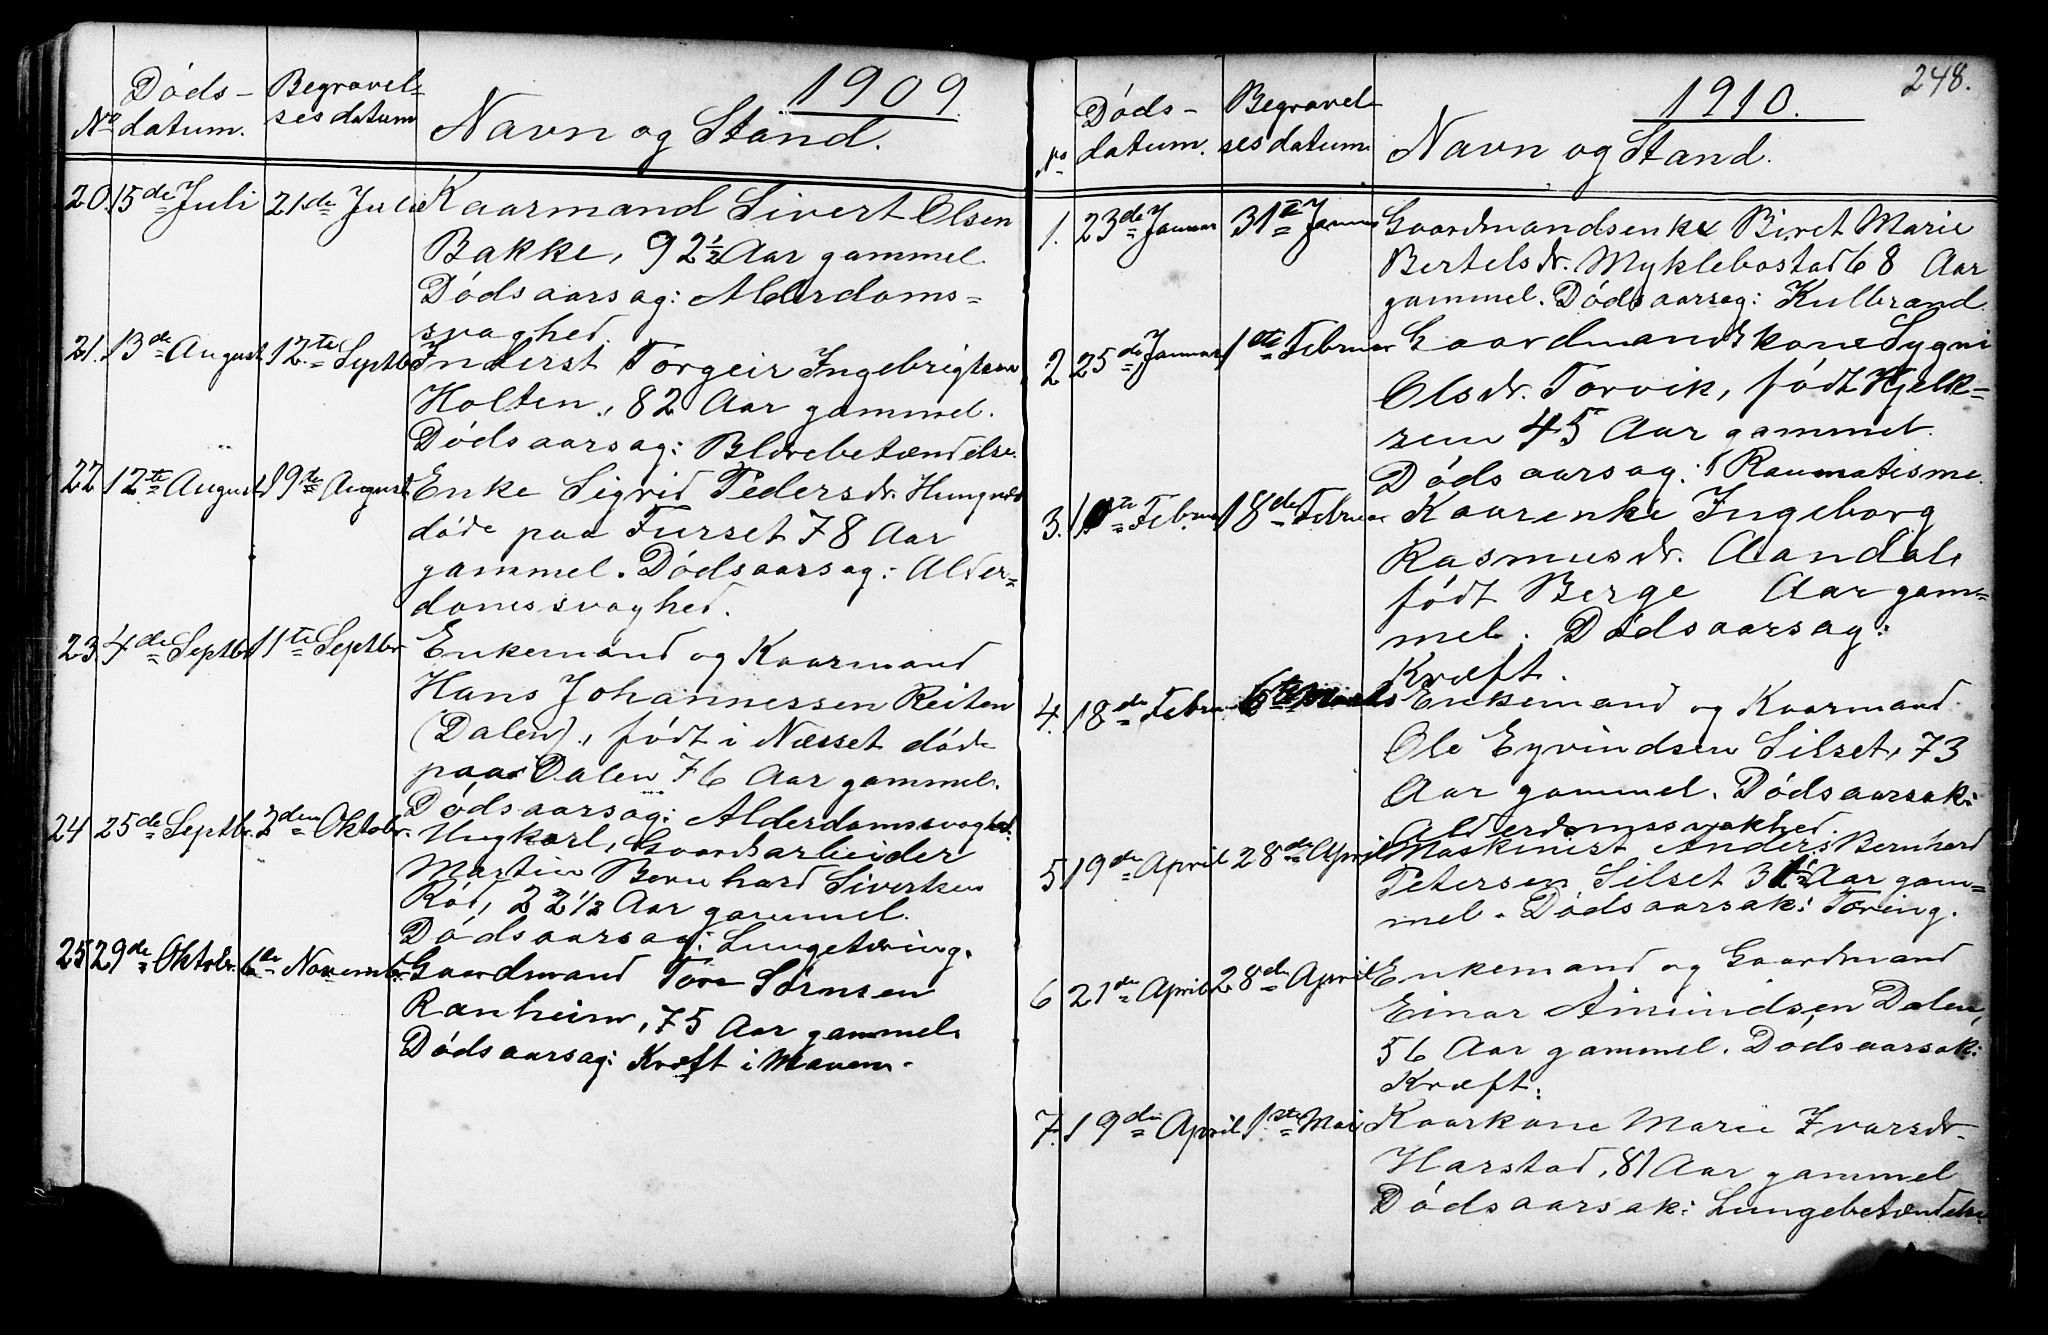 1909.
No
Døds-
datum.
Begravel-
sesdatum
Navn og Stand.
20. 15de Juli 21de Juli Kaarmand Sivert Olsen
Bakke, 92½ Aar gammel.
Dødsaarsag: Alderdoms=
svaghed.
21. 13de August 12te Septbr. Inderst Torgeir Ingebrigtsen
Holten, 82 Aar gammel.
Dødsaarsag: Blærebetændelse.
22 12te August 19de August Enke Sigrid Pedersdr. Hungnes
døde paa Furset 78 Aar
gammel. Dødsaarsag: Alder=
domssvaghed.
23. 4de Septbr. 11te Septbr. Enkemand og Kaarmand
Hans Johannessen Reiten
(Dalen), født i Næsset døde
paa Dalen 76 Aar gammel.
Dødsaarsag: Alderdomssvaghed.
24 25de Septbr. 2den Oktobr. Ungkarl, Gaardsarbeider
Martin Bernhard Sivertsen
Rød, 22½ Aar gammel.
Dødsaarsag: Lungetæring.
25 29de Oktobr. 6te Novembr. Gaardmand Tore Sørnsen
Ranheim, 75 Aar gammel.
Dødsaarsag: Kræft i Maven.
248.
1910.
No
Døds-
datum.
Begravel-
sesdatum
Navn og Stand.
1. 23de Januar 31te Januar Gaardmandsenke Biret Marie
Bertelsdr. Myklebostad 68 Aar
gammel. Dødsaarsag: Kulbrand
2 25de Januar 1ste Februar Gaardmandskone Sygni
Olsdr. Torvik, født Hjelk=
rem 45 Aar gammel.
Dødsaarsag: Raumatisme.
3. 10te Februar 18de Februar Kaarenke Ingeborg
Rasmusdr. Aandals
født Berge Aar gam=
mel. Dødsaarsag:
Kræft.
4. 18de Februar 6te Marts Enkemand og Kaarmand
Ole Eyvindsen Silset, 73
Aar gammel. Dødsaarsak:
Alderdomssvakhed.
5 19de April 28de April Maskinist Anders Bernhard
Petersen Silset 31½ Aar gam=
mel. Dødsaarsak: Tæring.
6 21de April 28de April Enkemand og Gaardmand
Einar Amundsen Dalen,
56 Aar gammel. Dødsaarsak:
Kræft.
7. 19de April 1ste Mai Kaarkone Marie Ivarsdr.
Harstad, 81 Aar gammel
Dødsaarsak: Lungebetændelse